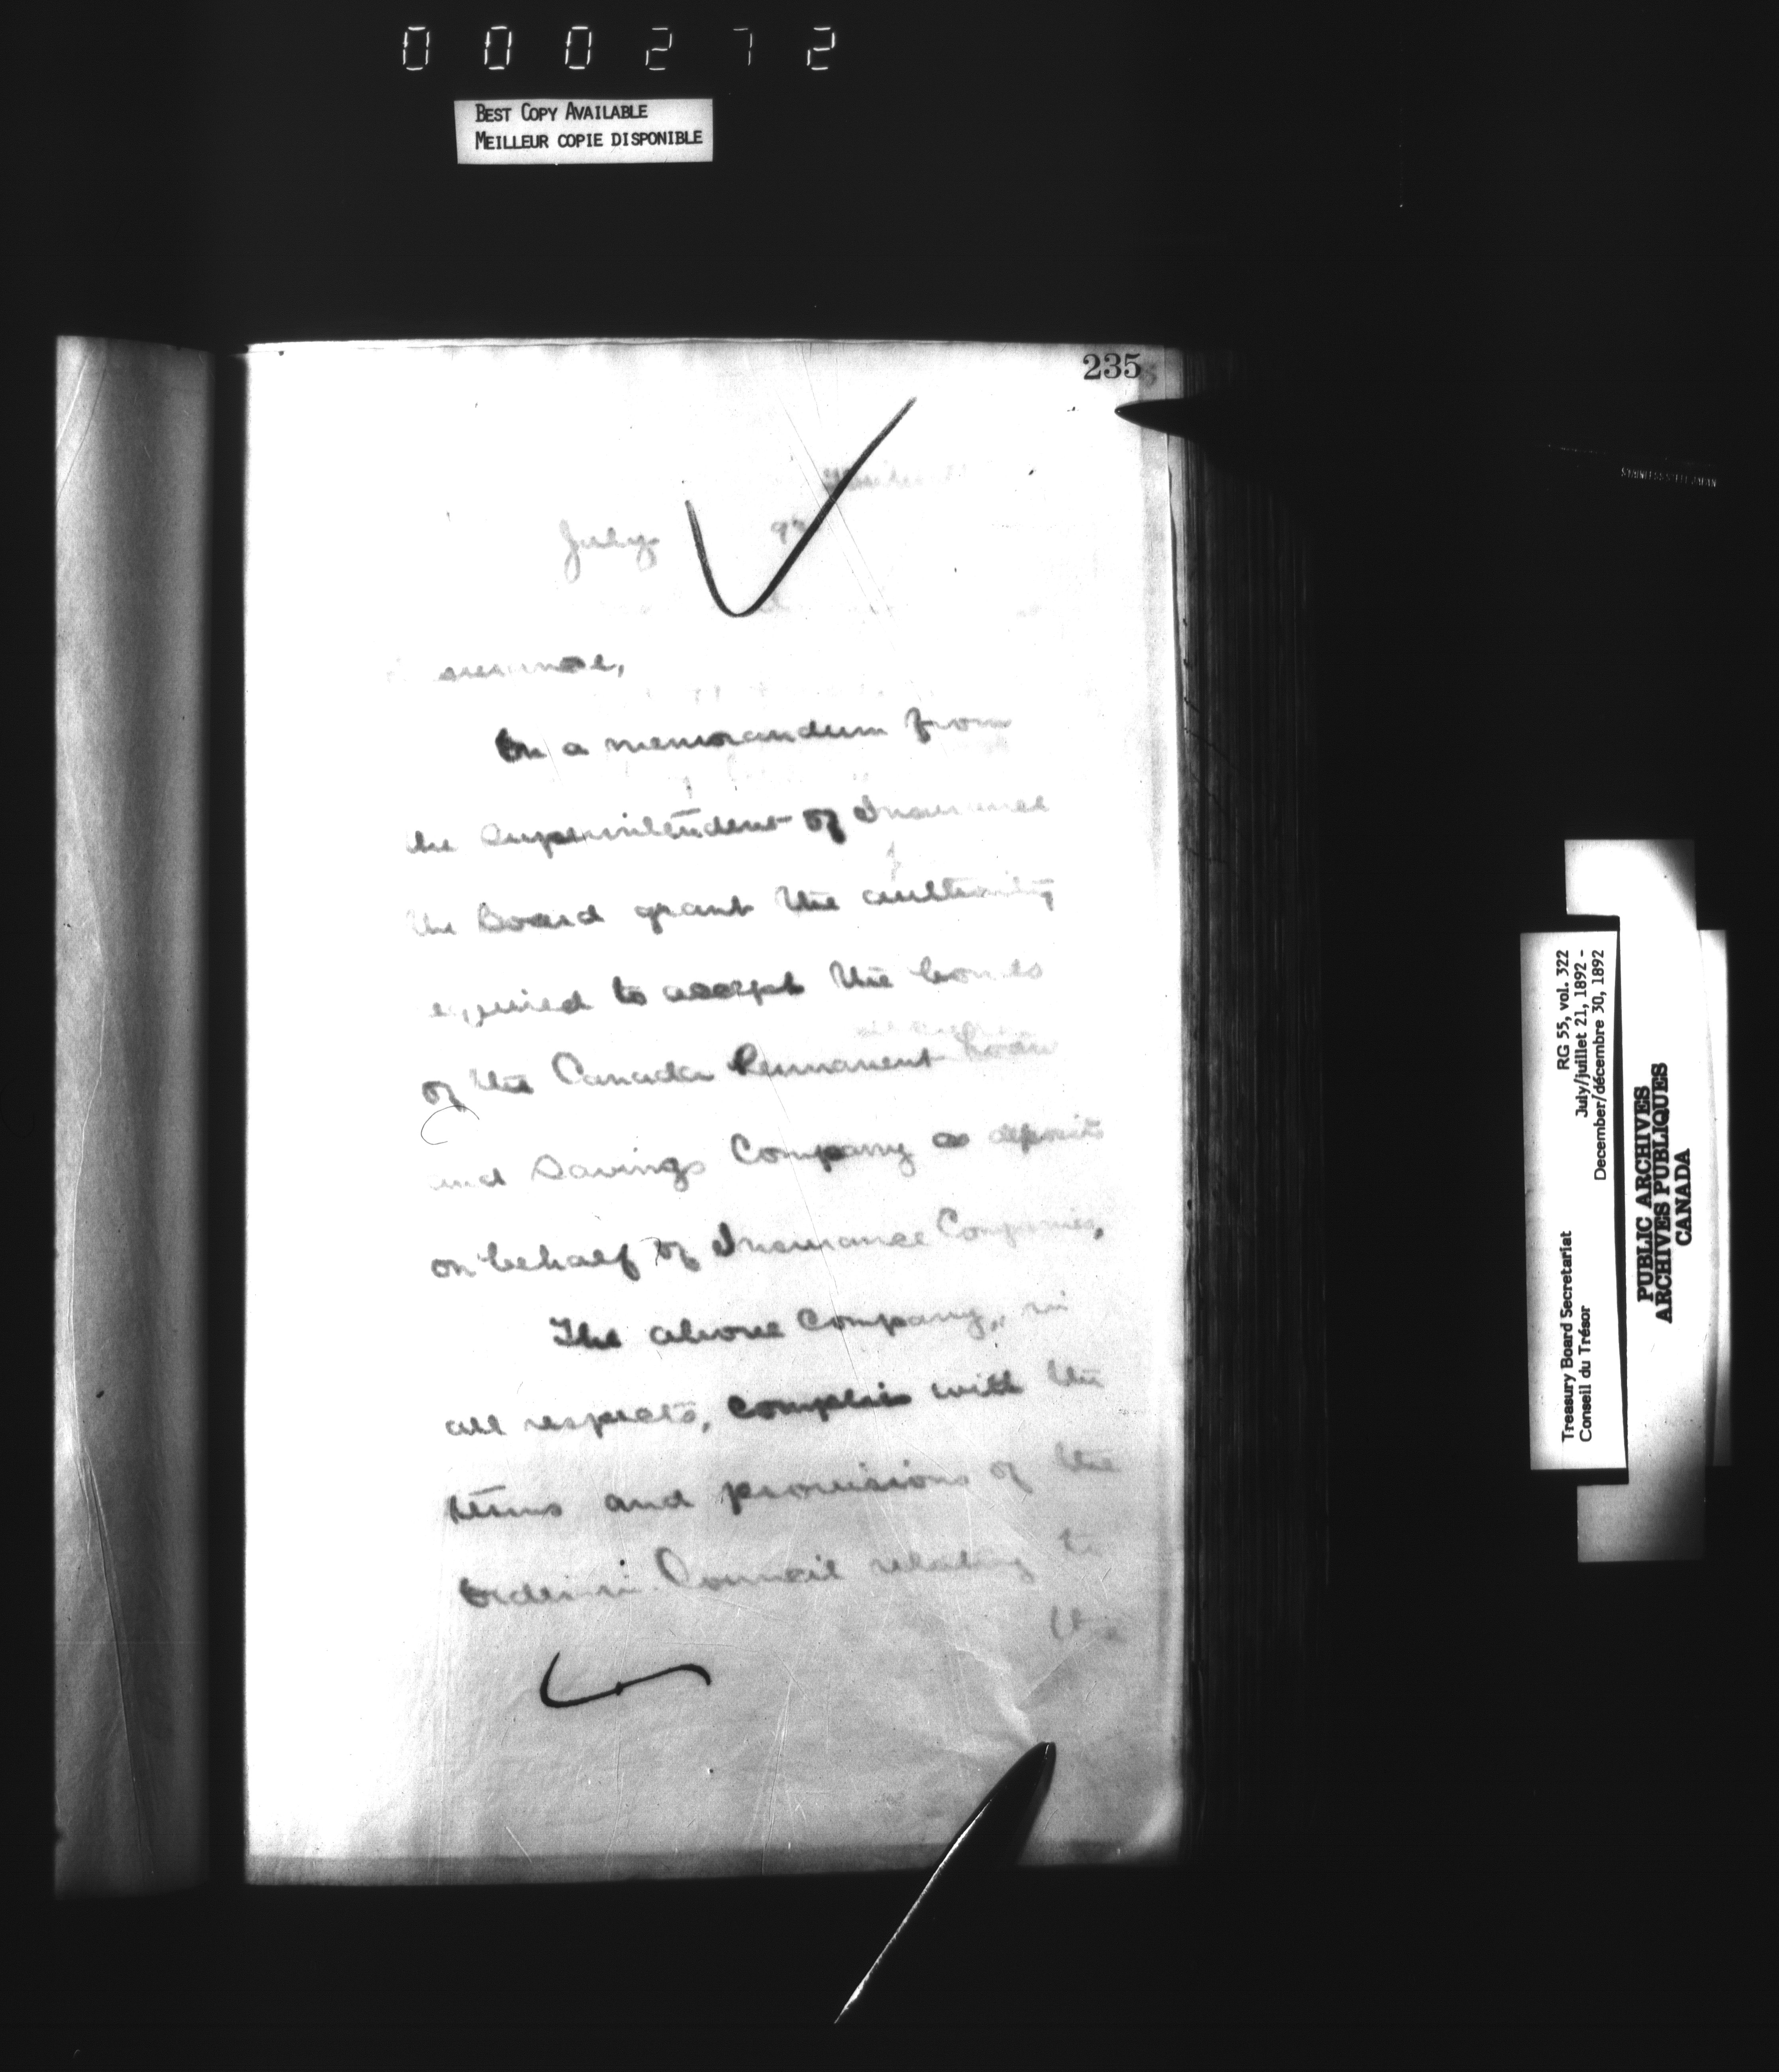 000272
BEST COPY AVAILABLE
MEILLEUR COPIE DISPONIBLE
235
July 9
On a memorandum from
the Superintendent of Insurance
the Board grant the authority
required to accept the bonds
of the Canada Permanent Loan
and Savings Company as deposits
on behalf of Insurance Companies,
The above Company, in
all respects, complies with the
terms and provisions of the
Order in Council relating to
the
STAINLESS STEEL JAPAN
Treasury Board Secretariat RG 55, vol. 322
Conseil du Trésor July/juillet 21, 1892 -
December/décembre 30, 1892
PUBLIC ARCHIVES
ARCHIVES PUBLIQUES
CANADA